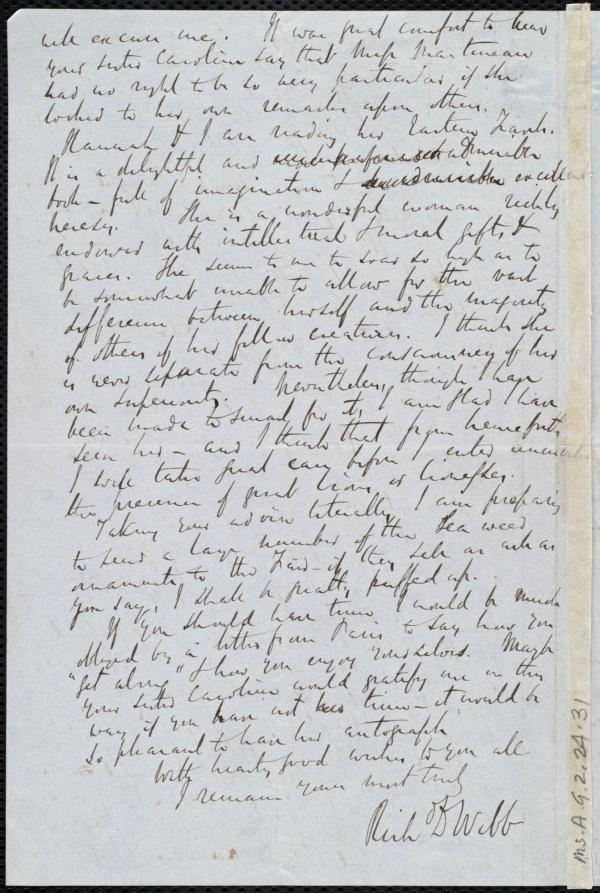 will excuse me. It was great comfort to hear
your sister Caroline say that Miss Martineau
had no right to be so very particular if she
looked to her own remarks upon others.
Hannah & I are reading her Eastern Travels.
It is a delightful and admirable
book – full of imagination & excellent
heresy. She is a wonderful woman richly
endowed with intellectual & moral gifts &
graces. She seems to me to soar so high as to
be somewhat unable to allow for the vast
difference between herself and the majority
of others of her fellow creatures. I think she
is never separate from the consciousness of her
own superiority. Nevertheless, though I have
been made to smart for it, I am glad I have
seen her – and I think that from henceforth
I will take great care before I enter
the presence of great lions or lionesses.
Taking your advice literally, I am preparing
to send a large number of the sea weed
ornaments to the Fair – if they sell as well as
you say, I shall be greatly puffed up.
If you should have time I would be much
obliged by a letter from Paris to say how you
"get along" & how you enjoy yourselves. Maybe
your sister Caroline would gratify me in this
way if you have not time – it would be
so pleasant to have her autograph.
With hearty good wishes to you all
I remain yours most truly
Richd D Webb
Ms. A. 9. 2. 24. 31